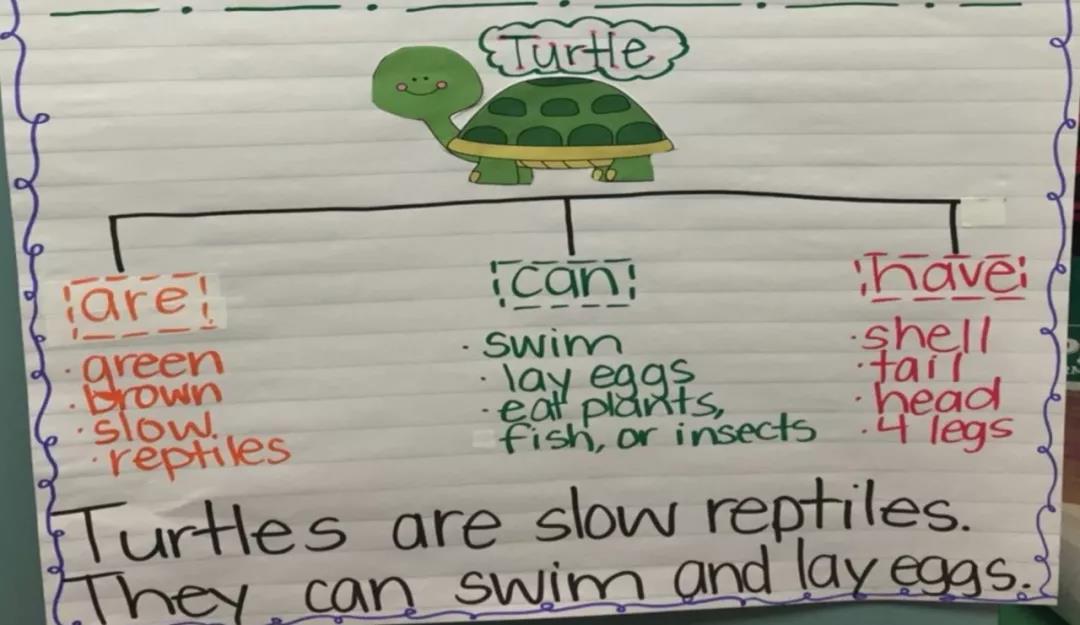 Turtle
are
green
brown
slow
reptiles
can
swim
lay eggs
eat plants,
fish, or insects
have
shell
tail
head
4 legs
Turtles are slow reptiles.
They can swim and lay eggs.